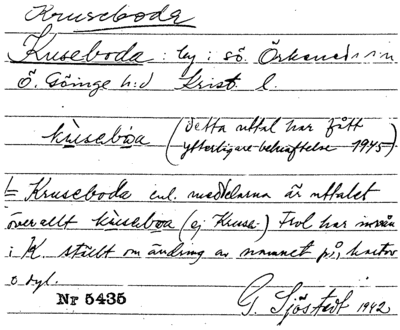 Kruseboda
Kuseboda : by i sö. Örkened sn
Ö. Göinge h:d Krist. l.
kùsebòa (detta uttal har fått
ytterligare bekräftelse 1945)
= Kruseboda enl. meddelarna är uttalet
överallt kùseboa (ej Kruse-) Frol har
i K. ställt om ändring av namnet på, kartor
o dyl.
Nr 5435
G. Sjöstedt 1942